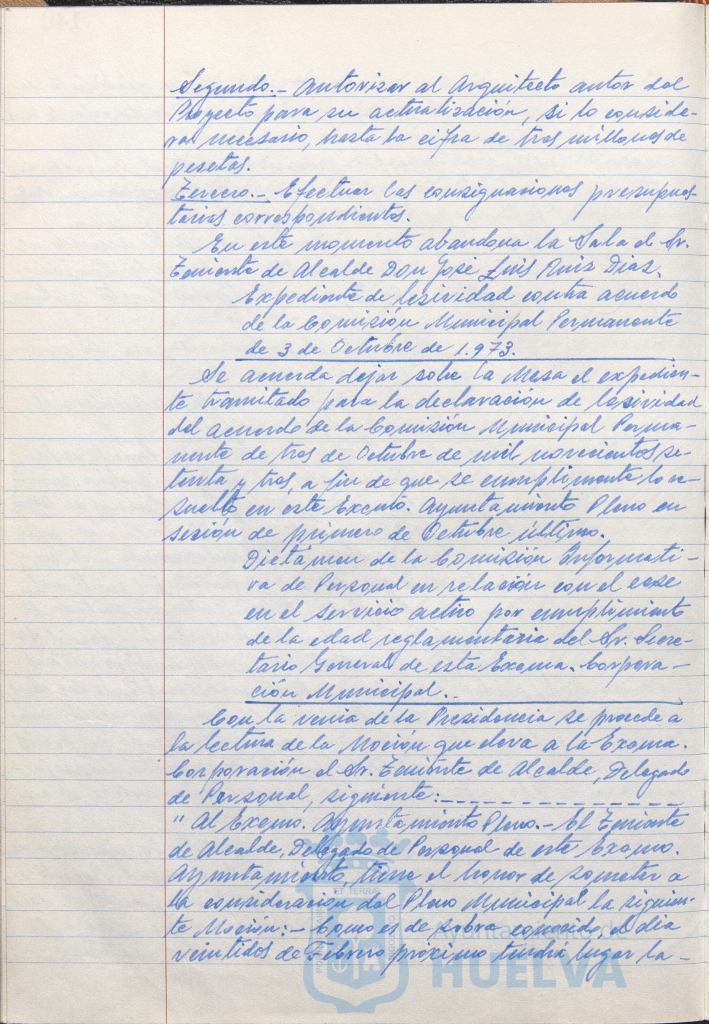 Segundo.- Autorizar al Arquitecto autor del
Proyecto para su actualización, si lo conside-
ra necesario, hasta la cifra de tres millones de
pesetas.
Tercero.- Efectuar las consignaciones presupues-
tarias correspondientes.
En este momento abandona la Sala el Sr.
Teniente de Alcalde Don José Luis Ruiz Diaz.
Expediente de lesividad contra acuerdo
de la Comisión Municipal Permanente
de 3 de Octubre de 1.973.
Se acuerda dejar sobre la Mesa el expedien-
te tramitado para la declaración de lesividad
del acuerdo de la Comisión Municipal Perma-
nente de tres de Octubre de mil novecientos se-
tenta y tres, a fin de que se cumplimente lo re-
suelto en este Excmo. Ayuntamiento Pleno en
sesión de primero de Octubre último.
Dictámen de la Comisión Informati-
va de Personal en relación con el cese
en el servicio activo por cumplimiento
de la edad reglamentaria del Sr. Secre-
tario General de esta Excma. Corpora-
ción Municipal.-
Con la venia de la Presidencia se procede a
la lectura de la Moción que eleva a la Excma.
Corporación el Sr. Teniente de Alcalde, Delegado
de Personal, siguiente:
" Al Excmo. Ayuntamiento Pleno.- El Teniente
de Alcalde, Delegado de Personal de este Excmo.
Ayuntamiento, tiene el honor de someter a
la consideración del Pleno Municipal la siguien-
te Moción:- Como es de sobra conocido el dia
veintidos de Febrero próximo tendrá lugar la-
ET TERRA
Ayuntamiento de
HUELVA